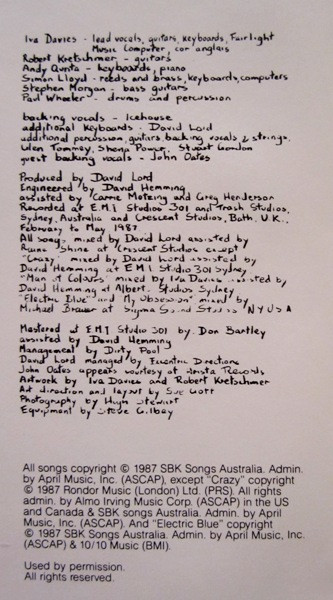 Iva Davies - lead vocals, guitars, keyboards, Fairlight
Music Computer, cor anglais
Robert Kretschmer - guitars
Andy Qunta - keyboards, piano
Simon Lloyd - reeds and brass, keyboards, computers
Stephen Morgan - bass guitars
Paul Wheeler - drums and percussion
backing vocals - Icehouse
additional keyboards - David Lord
additional percussion, guitars, backing vocals & strings.
Glen Tommey, Shena Power, Stuart Gordon
guest backing vocals - John Oates
Produced by David Lord
Engineered by David Hemming
assisted by Carrie Motzing and Greg Henderson
Recorded at E.M.I Studios 301 and Trash Studios,
Sydney, Australia and Crescent Studios, Bath, U.K.,
February to May 1987
All songs mixed by David Lord assisted by
Raine Shine at Crescent Studios except
"Crazy" mixed by David Lord assisted by
David Hemming at EMI Studio 301 Sydney
"Man of Colours" mixed by Iva Davies assisted by
David Hemming at Albert Studios Sydney
"Electric Blue" and "My Obsession" mixed by
Michael Brauer at Sigma Sound Studios NY USA
Mastered at E.M.I Studio 301 by Don Bartley
assisted by David Hemming
Management by Dirty Pool
David Lord managed by Eccentric Directions
John Oates appears courtesy of Arista Records
Artwork by Iva Davies and Robert Kretschmer
Art direction and layout by Sue Gott
Photography by Hugh Stewart
Equipment by Steve Gilbey
All songs copyright © 1987 SBK Songs Australia. Admin.
by April Music, Inc. (ASCAP), except "Crazy" copyright
© 1987 Rondor Music (London) Ltd. (PRS). All rights
admin. by Almo Irving Music Corp. (ASCAP) in the US
and Canada & SBK songs Australia. Admin. by April
Music, Inc. (ASCAP). And "Electric Blue" copyright
© 1987 SBK Songs Australia. Admin. by April Music, Inc.
(ASCAP) & 10/10 Music (BMI).
Used by permission.
All rights reserved.